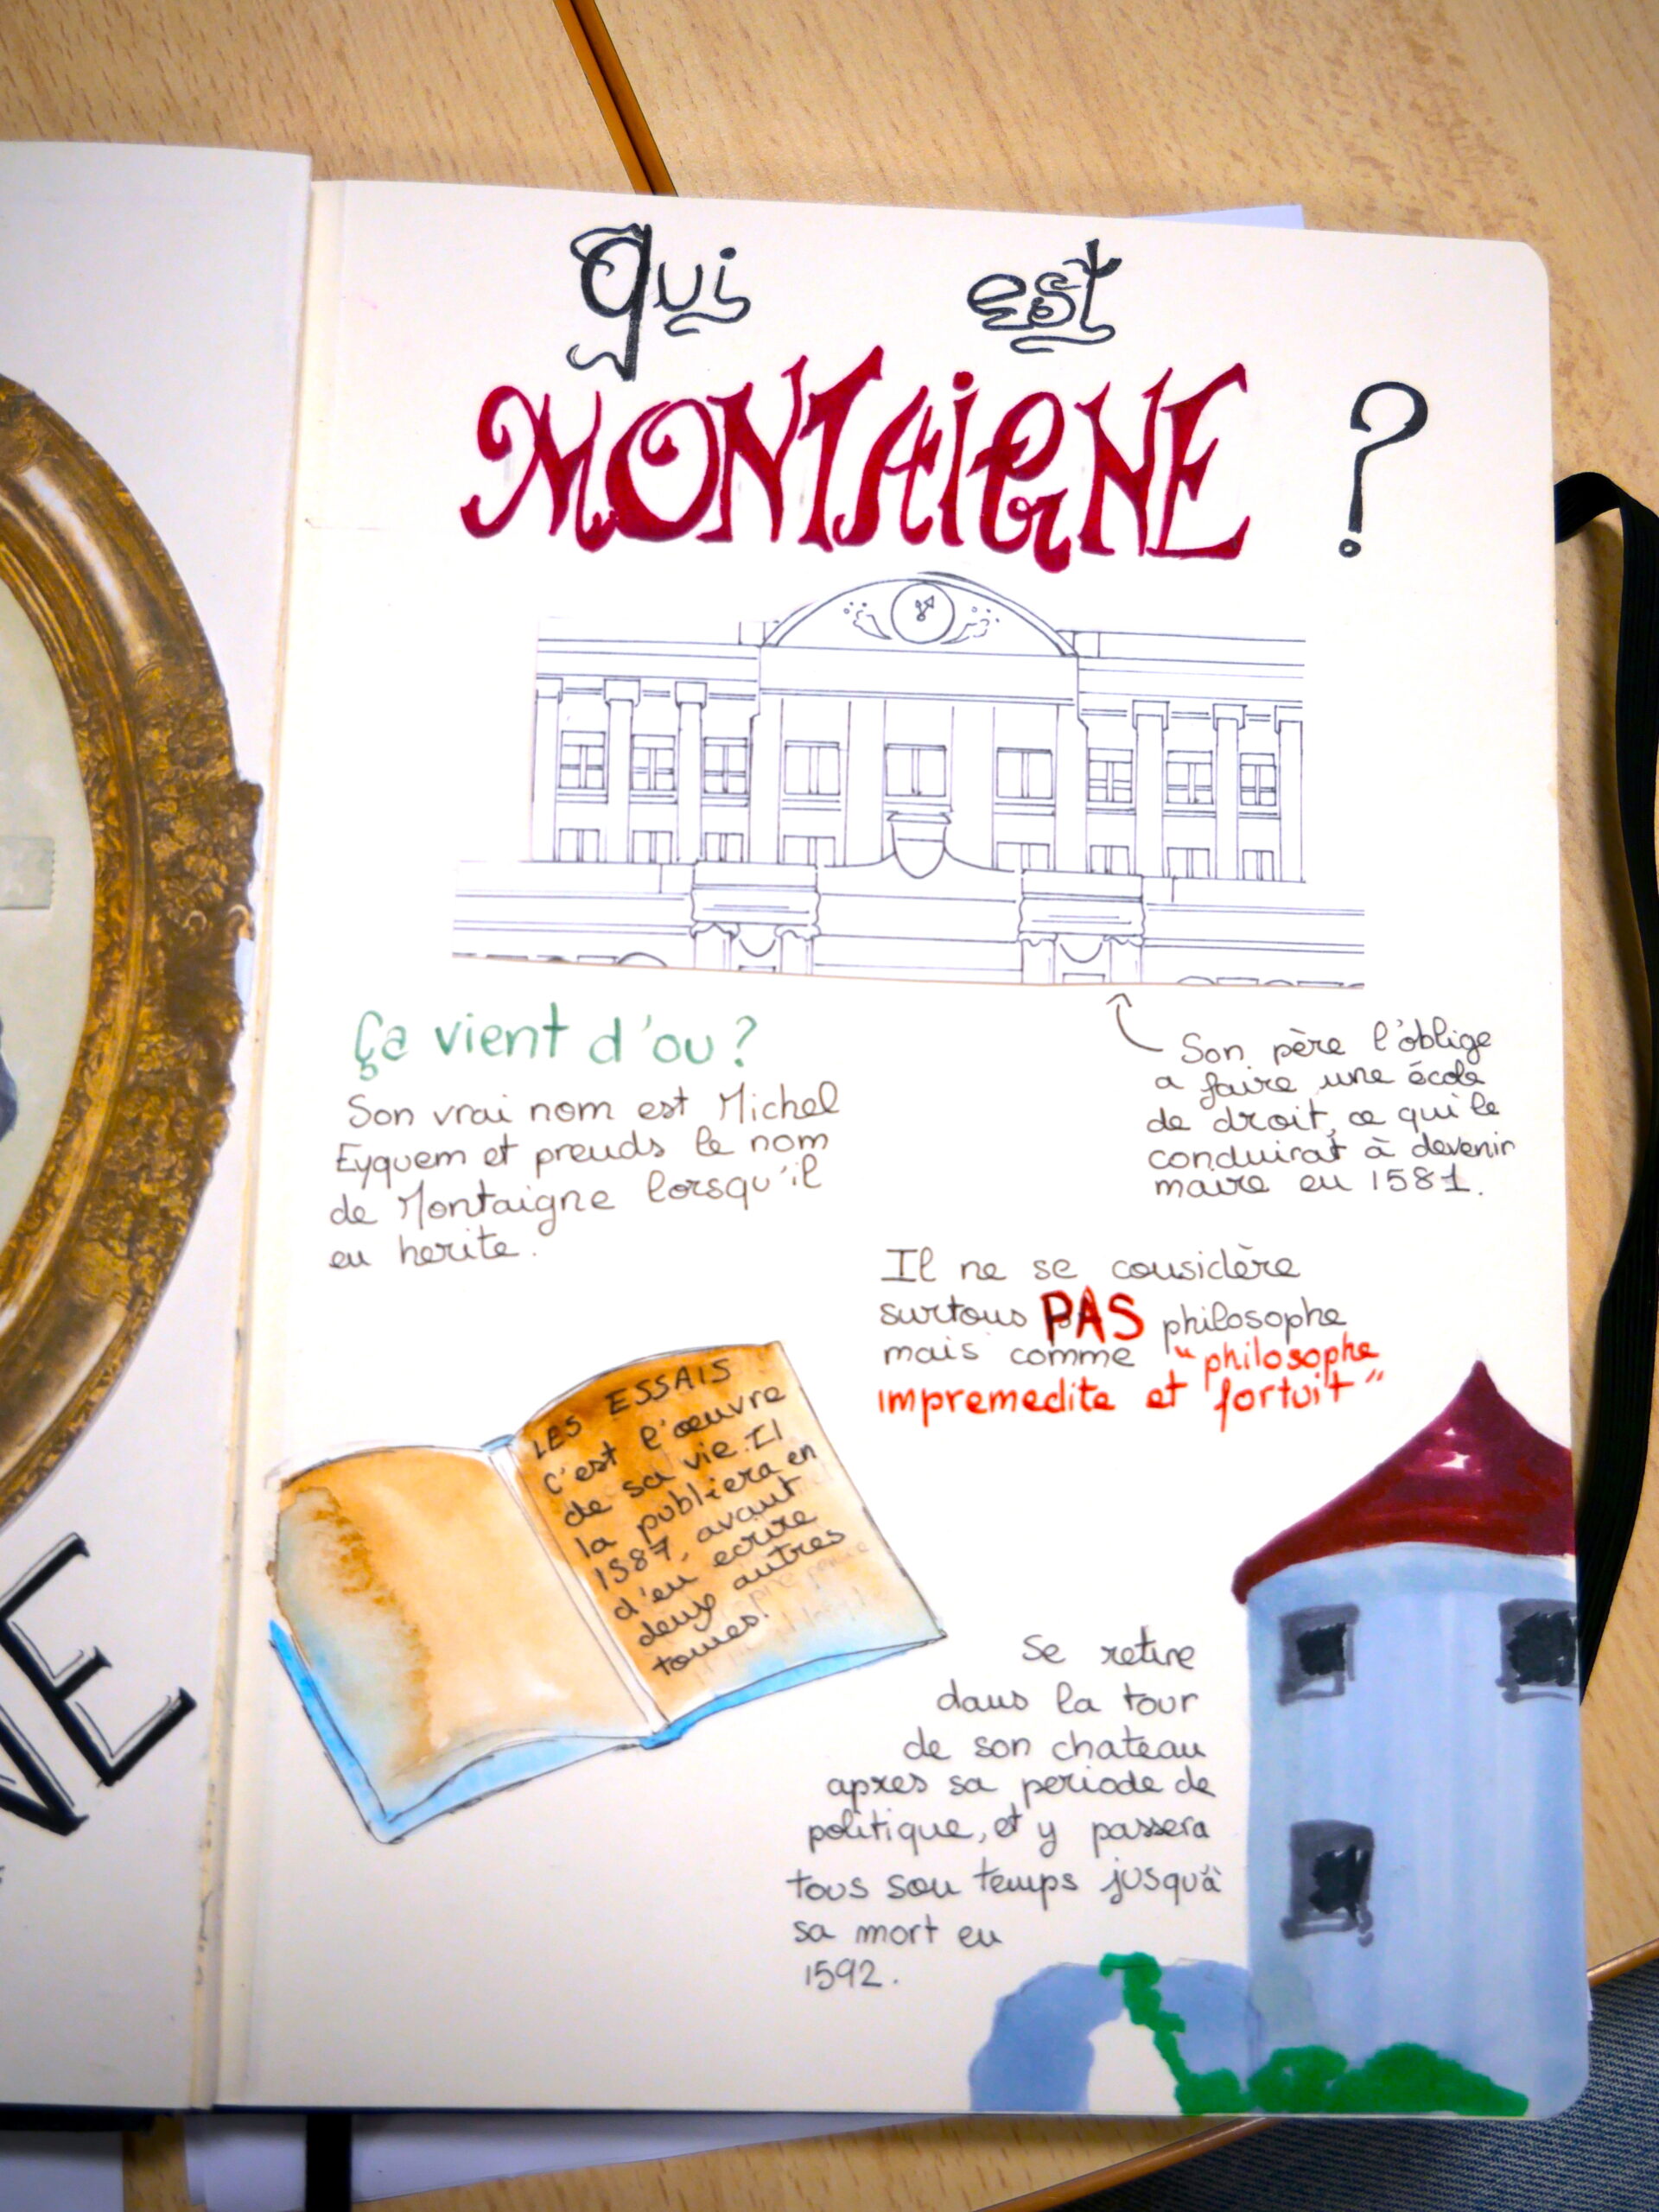 qui est
MONTAIGNE ?
Ça vient d'ou ?
Son vrai nom est Michel
Eyquem et prends le nom
de Montaigne lorsqu'il
en herite.
Son père l'oblige
a faire une école
de droit, ce qui le
conduirat à devenir
maire en 1581.
Il ne se considère
surtous PAS philosophe
mais comme "philosophe
impremedite et fortuit"
LES ESSAIS
c'est l'œuvre
de sa vie. Il
la publiera en
1587, avant
d'en ecrire
deux autres
tomes.
Se retire
dans la tour
de son chateau
apres sa periode de
politique, et y passera
tous son temps jusqu'à
sa mort en
1592.
NE